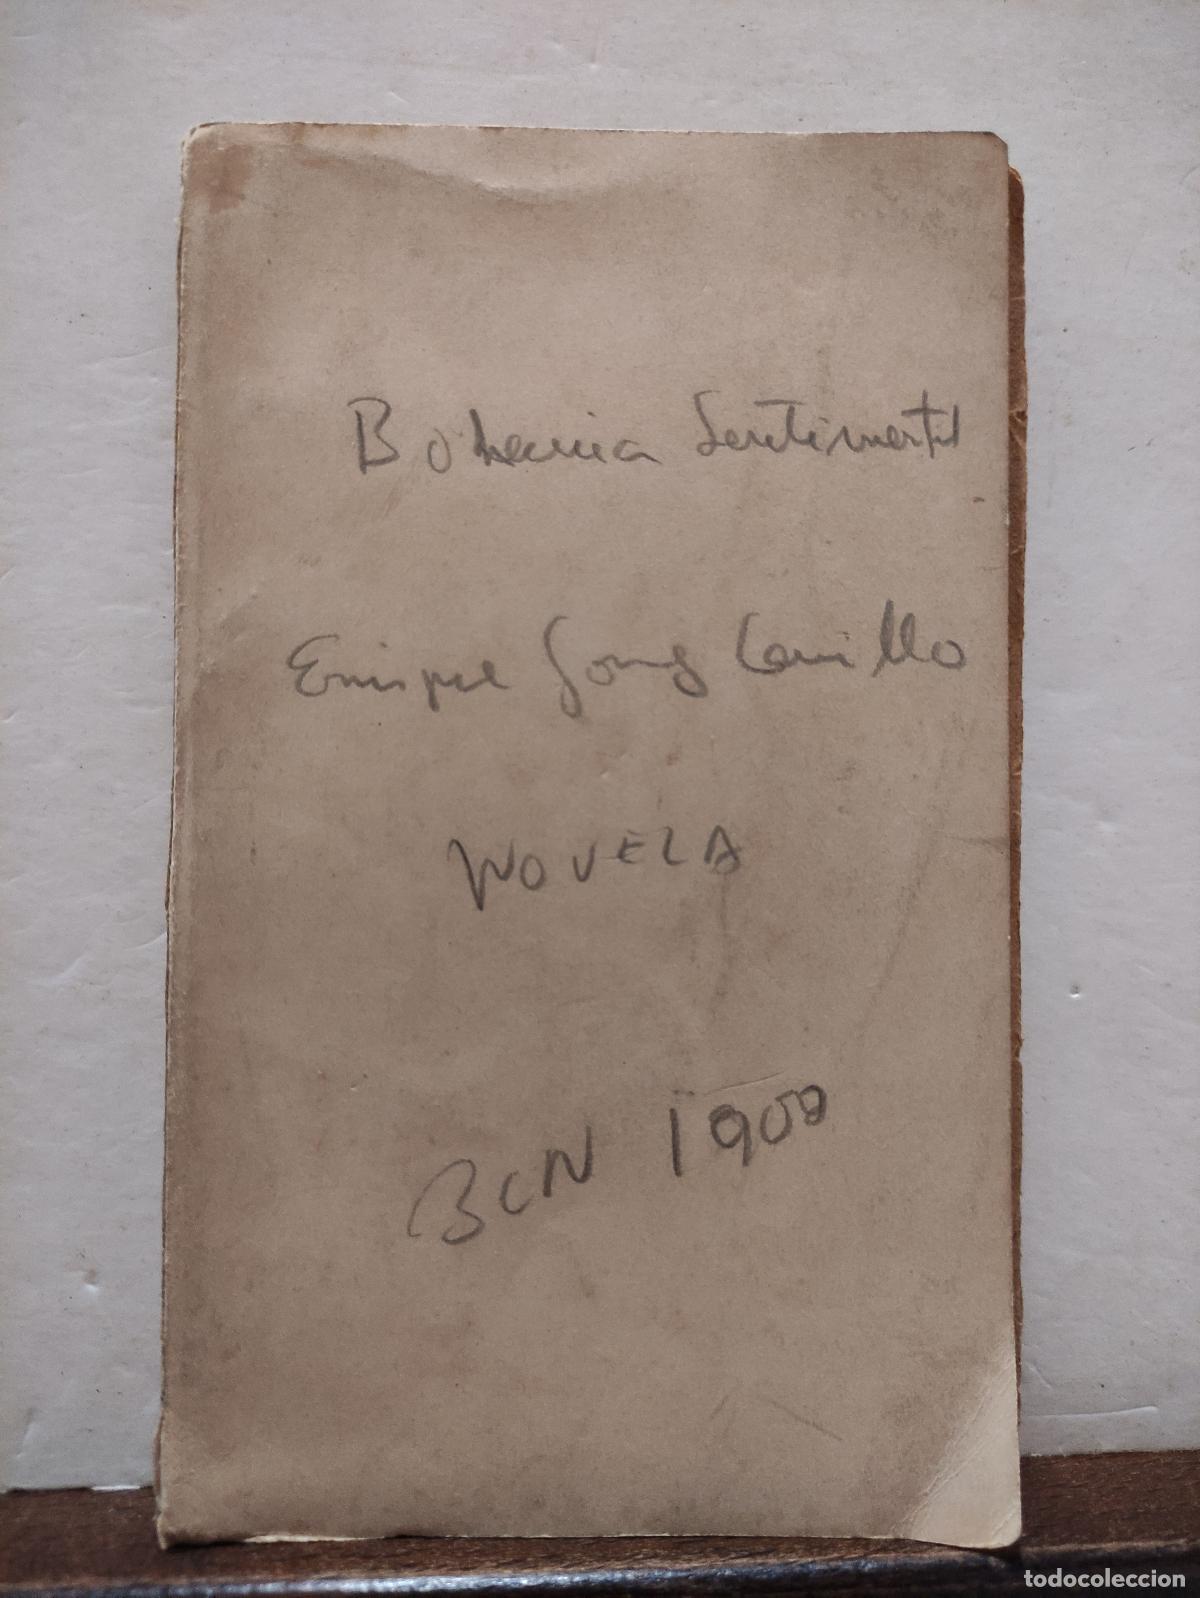 Bohemia Sentimental
Enrique Gomez Carrillo
NOVELA
BCN 1900
todocoleccion